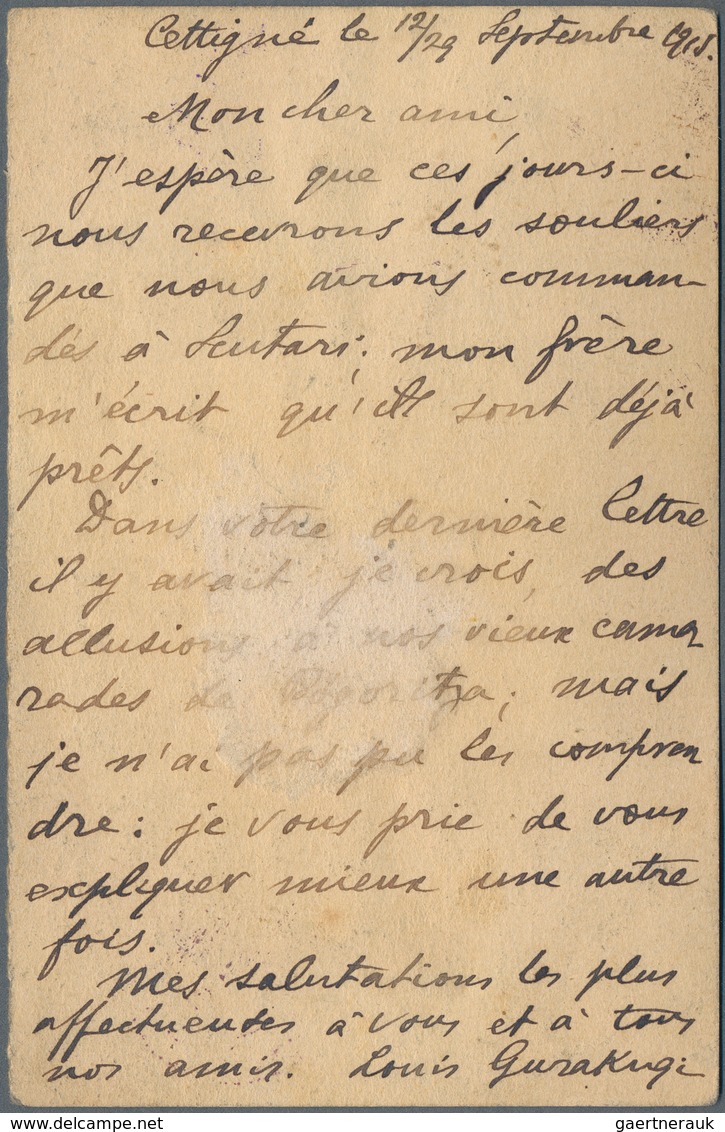 Cettigné le 12/29 Septembre 1915.
Mon cher ami,
J'espère que ces jours-ci
nous recevrons les souliers
que nous avions comman-
dés à Scutari; mon frère
m'écrit qu'ils sont déjà
prêts.
Dans votre dernière lettre
il y avait, je crois, des
allusions à nos vieux cama
rades de Pogoritza; mais
je n'ai pas pu les compren
dre: je vous prie de vous
expliquer mieux une autre
fois.
Mes salutations les plus
affectueuses à vous et à tous
nos amis. Louis Gurakuqi
gaertnerauk